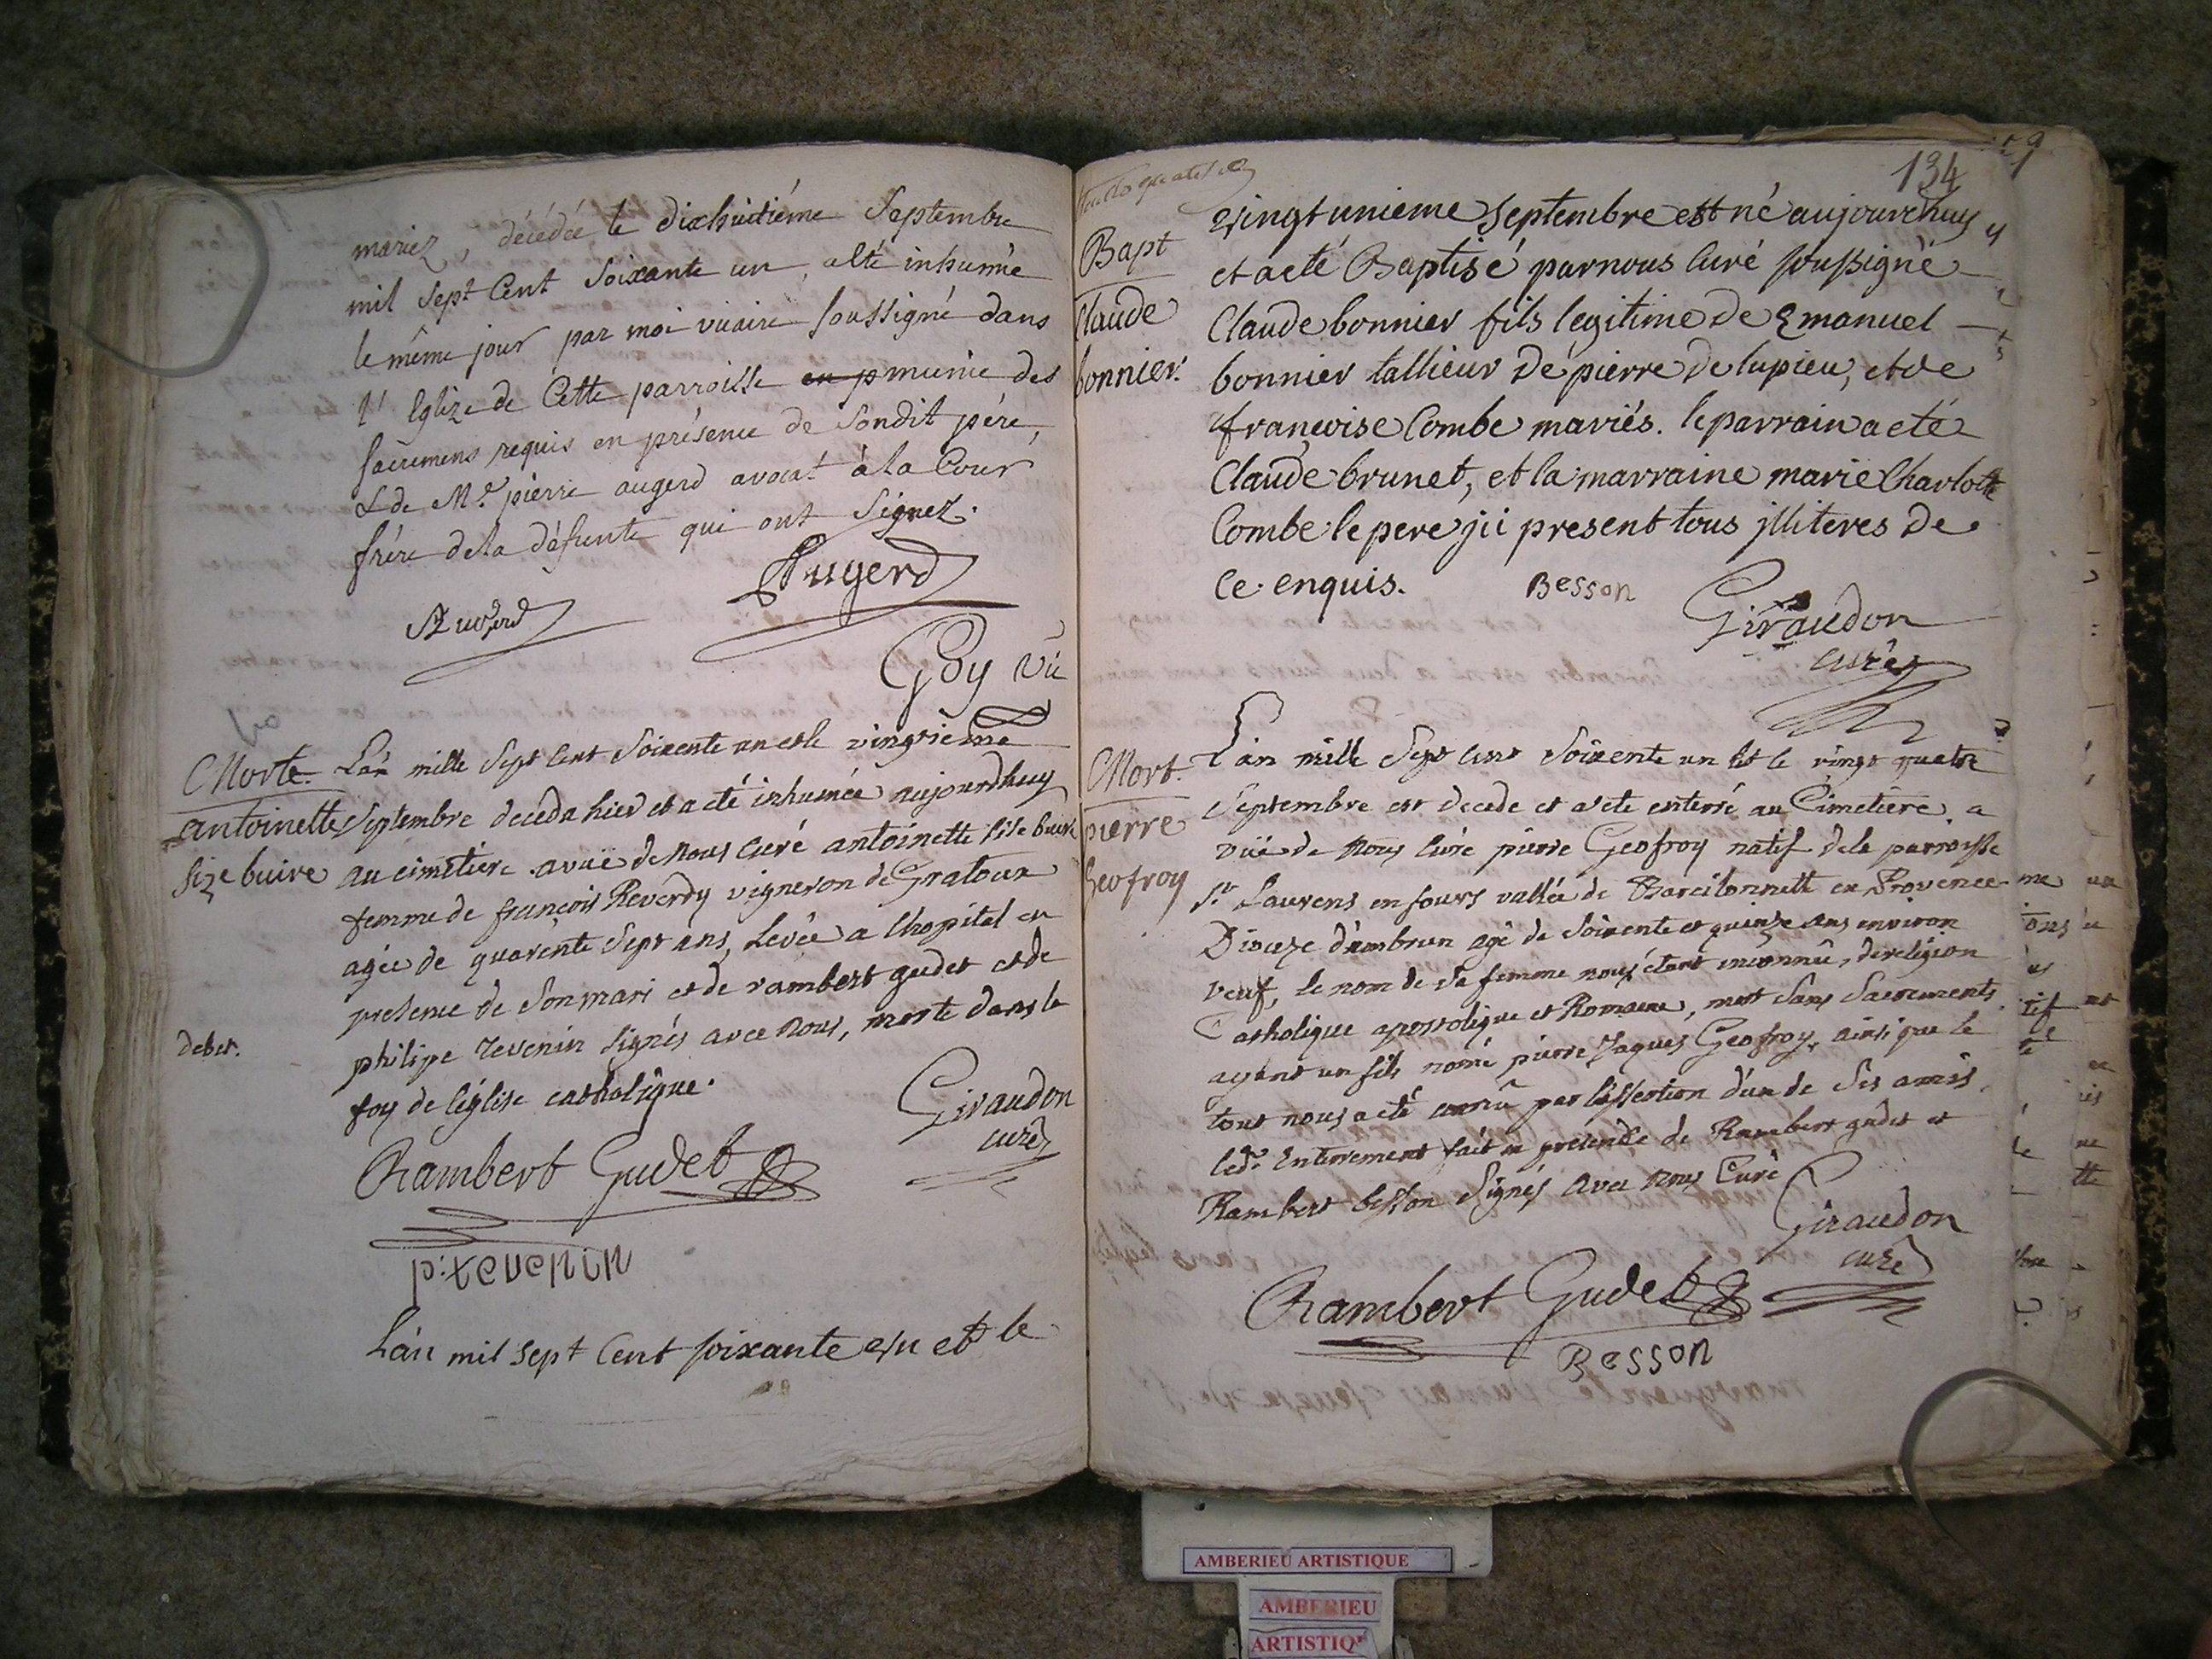 mariez, décédée le dixhuitiéme Septembre
mil Sept Cent Soixante un, a été inhumée
le même jour par moi vicaire soussigné dans
l'Eglize de Cette parroisse en p munie des
sacremens requis en présence de Sondit pére,
& de Mr. pierre augerd avocat à la Cour
frére dela défunte qui ont Signez.
Augerd
Augerd
Goy vic
Morte.
antoinette
size buire
debet.
L'an mille Sept Cent Soixente un et le vingtieme
Septembre deceda hier et a eté inhumée aujourdhuy
au cimetiere avuë de nous curé antoinette sise buire
femme de françois Reverdy vigneron de Gratoux
agée de quarente Sept ans, Levée a lhopital en
presence de Son mari et de rambert gudet et de
philipe tevenin signés avec nous, morte dans la
foy de l'église catholique.
Giraudon
curé
Rambert Gudet
p:tevenin
L'an mil sept Cent soixante et un et le
134
Bapt
Claude
bonnier.
vingt unieme septembre est né aujourdhuy
et a eté Baptisé par nous Curé soussigné
Claude bonnier fils legitime de Emanuel
bonnier tallieur de pierre de lupieu, et de
françoise Combe mariés. le parrain a eté
Claude brunet, et la marraine marie Charlotte
Combe le pere jci present tous jlliteres de
ce enquis.
Besson
Giraudon
curé
Mort.
pierre
Geofroy
L'an mille Sept Cent Soixente un et le vingt quatre
Septembre est decede et a eté enterré au Cimetiere, a
vuë de Nous Curé pierre Geofroy natif dela parroisse
St. Laurens en fours vallée de Barcilonnette en Provence
Dioceze d'ambrun agé de Soixente et quinze ans environ
veuf, le nom de sa femme nous étant inconnû, de religion
Catholique apostolique et Romaine, mort Sans Sacrements
ayant un fils nomé pierre Jaques Geofroy, ainsi que le
tout nous a eté connû par l'assertion d'un de Ses amis
led. Enterrement fait en presence de Rambert gudet et
Rambert besson signés avec nous Curé
Giraudon
curé
Rambert Gudet
Besson
AMBERIEU ARTISTIQUE
AMBERIEU
ARTISTIQ